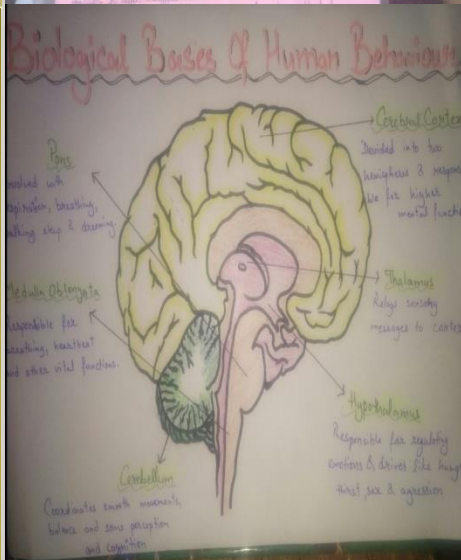 Biological Bases Of Human Behaviour
Cerebral Cortex
Divided into two
hemispheres & respons
ble for higher
mental functio
Pons
involved with
respiration, breathing,
walking sleep & dreaming.
Thalamus
Relays sensory
messages to cortex
Medulla Oblongata
Responsible for
breathing, heartbeat
and other vital functions.
Hypothalamus
Responsible for regulating
emotions & drives like hung
thirst, sex & agression
Cerebellum
Coordinates smooth movements,
balance and some perception
and cognition